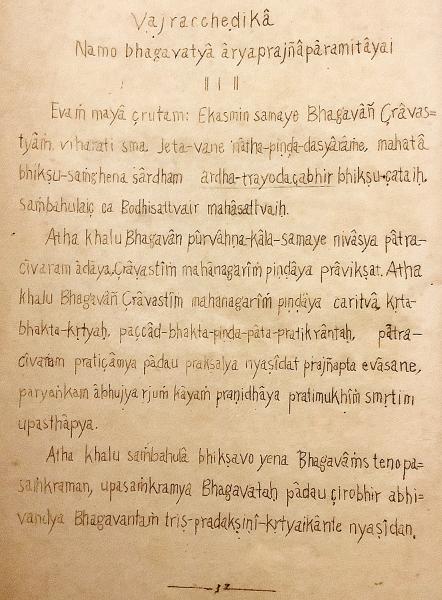 Vajracchedikâ
Namo bhagavatyâ âryaprajñâpâramitâyai
॥ 1 ॥
Evaṁ mayâ çrutam: Ekasmin samaye Bhagavâñ Çrâvas=
tyâṁ viharati sma Jeta-vane 'nâtha-piṇḍa-dasyârâme, mahatâ
bhikṣu-saṁghena sârdham ardha-trayodaçabhir bhikṣu-çataiḥ,
saṁbahulaiç ca Bodhisattvair mahâsattvaiḥ.
Atha khalu Bhagavân pûrvâhṇa-kâla-samaye nivâsya pâtra-
cîvaram âdâya, Çrâvastîṁ mahânagarîṁ piṇḍâya prâvikṣat. Atha
khalu Bhagavâñ Çrâvastîṁ mahanagarîṁ piṇḍâya caritvâ, kṛta-
bhakta-kṛtyaḥ, paçcâd-bhakta-piṇḍa-pâta-pratikrântaḥ, pâtra-
cîvaraṁ pratiçâmya pâdau prakṣalya nyaṣîdat prajñapta evâsane,
paryaṅkam âbhujya ṛjuṁ kâyaṁ praṇidhâya pratimukhîṁ smṛtim
upasthâpya.
Atha khalu saṁbahulâ bhikṣavo yena Bhagavâṁs tenopa=
saṁkraman, upasaṁkramya Bhagavataḥ pâdau çirobhir abhi-
vandya Bhagavantaṁ triṣ-pradakṣiṇî-kṛtyaikânte nyaṣîdan.